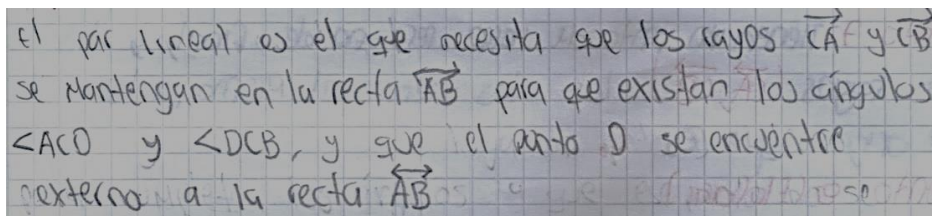 El par lineal es el que necesita que los rayos CA y CB
se mantengan en la recta AB para que existan los ángulos
<ACD y <DCB, y que el punto D se encuentre
externo a la recta AB